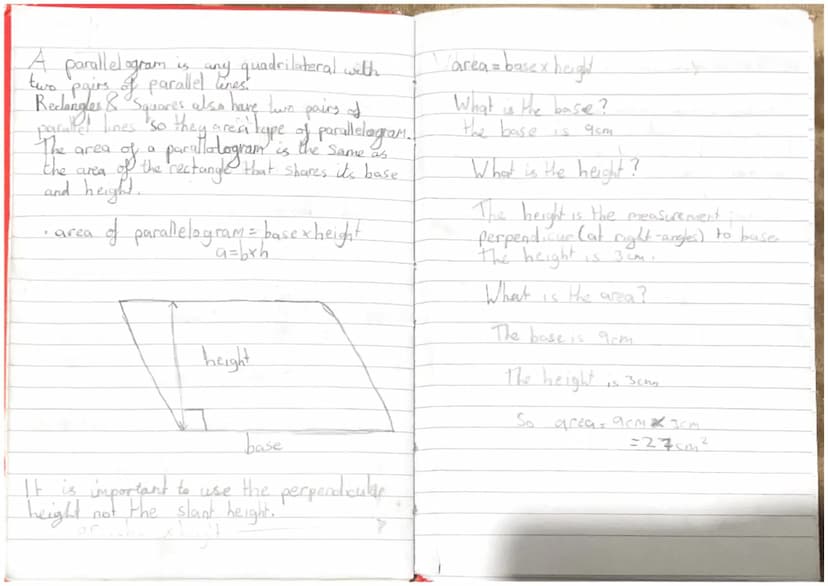 A parallelogram is any quadrilateral with
two pairs of parallel lines.
Rectangles & Squares also have two pairs of
parallel lines so they are a type of parallelogram.
The area of a parallologram is the same as
the area of the rectangle that shares its base
and height.
· area of parallelogram = base x height
a=bxh
height
base
It is important to use the perpendicular
height not the slant height.
area = base x height
What is the base?
the base is 9cm
What is the height?
The height is the measurement
(at right-angles) to base.
The height is 3cm.
What is the area?
The base is 9cm
The height is 3cm
So area = 9cm x 3cm
= 27cm²